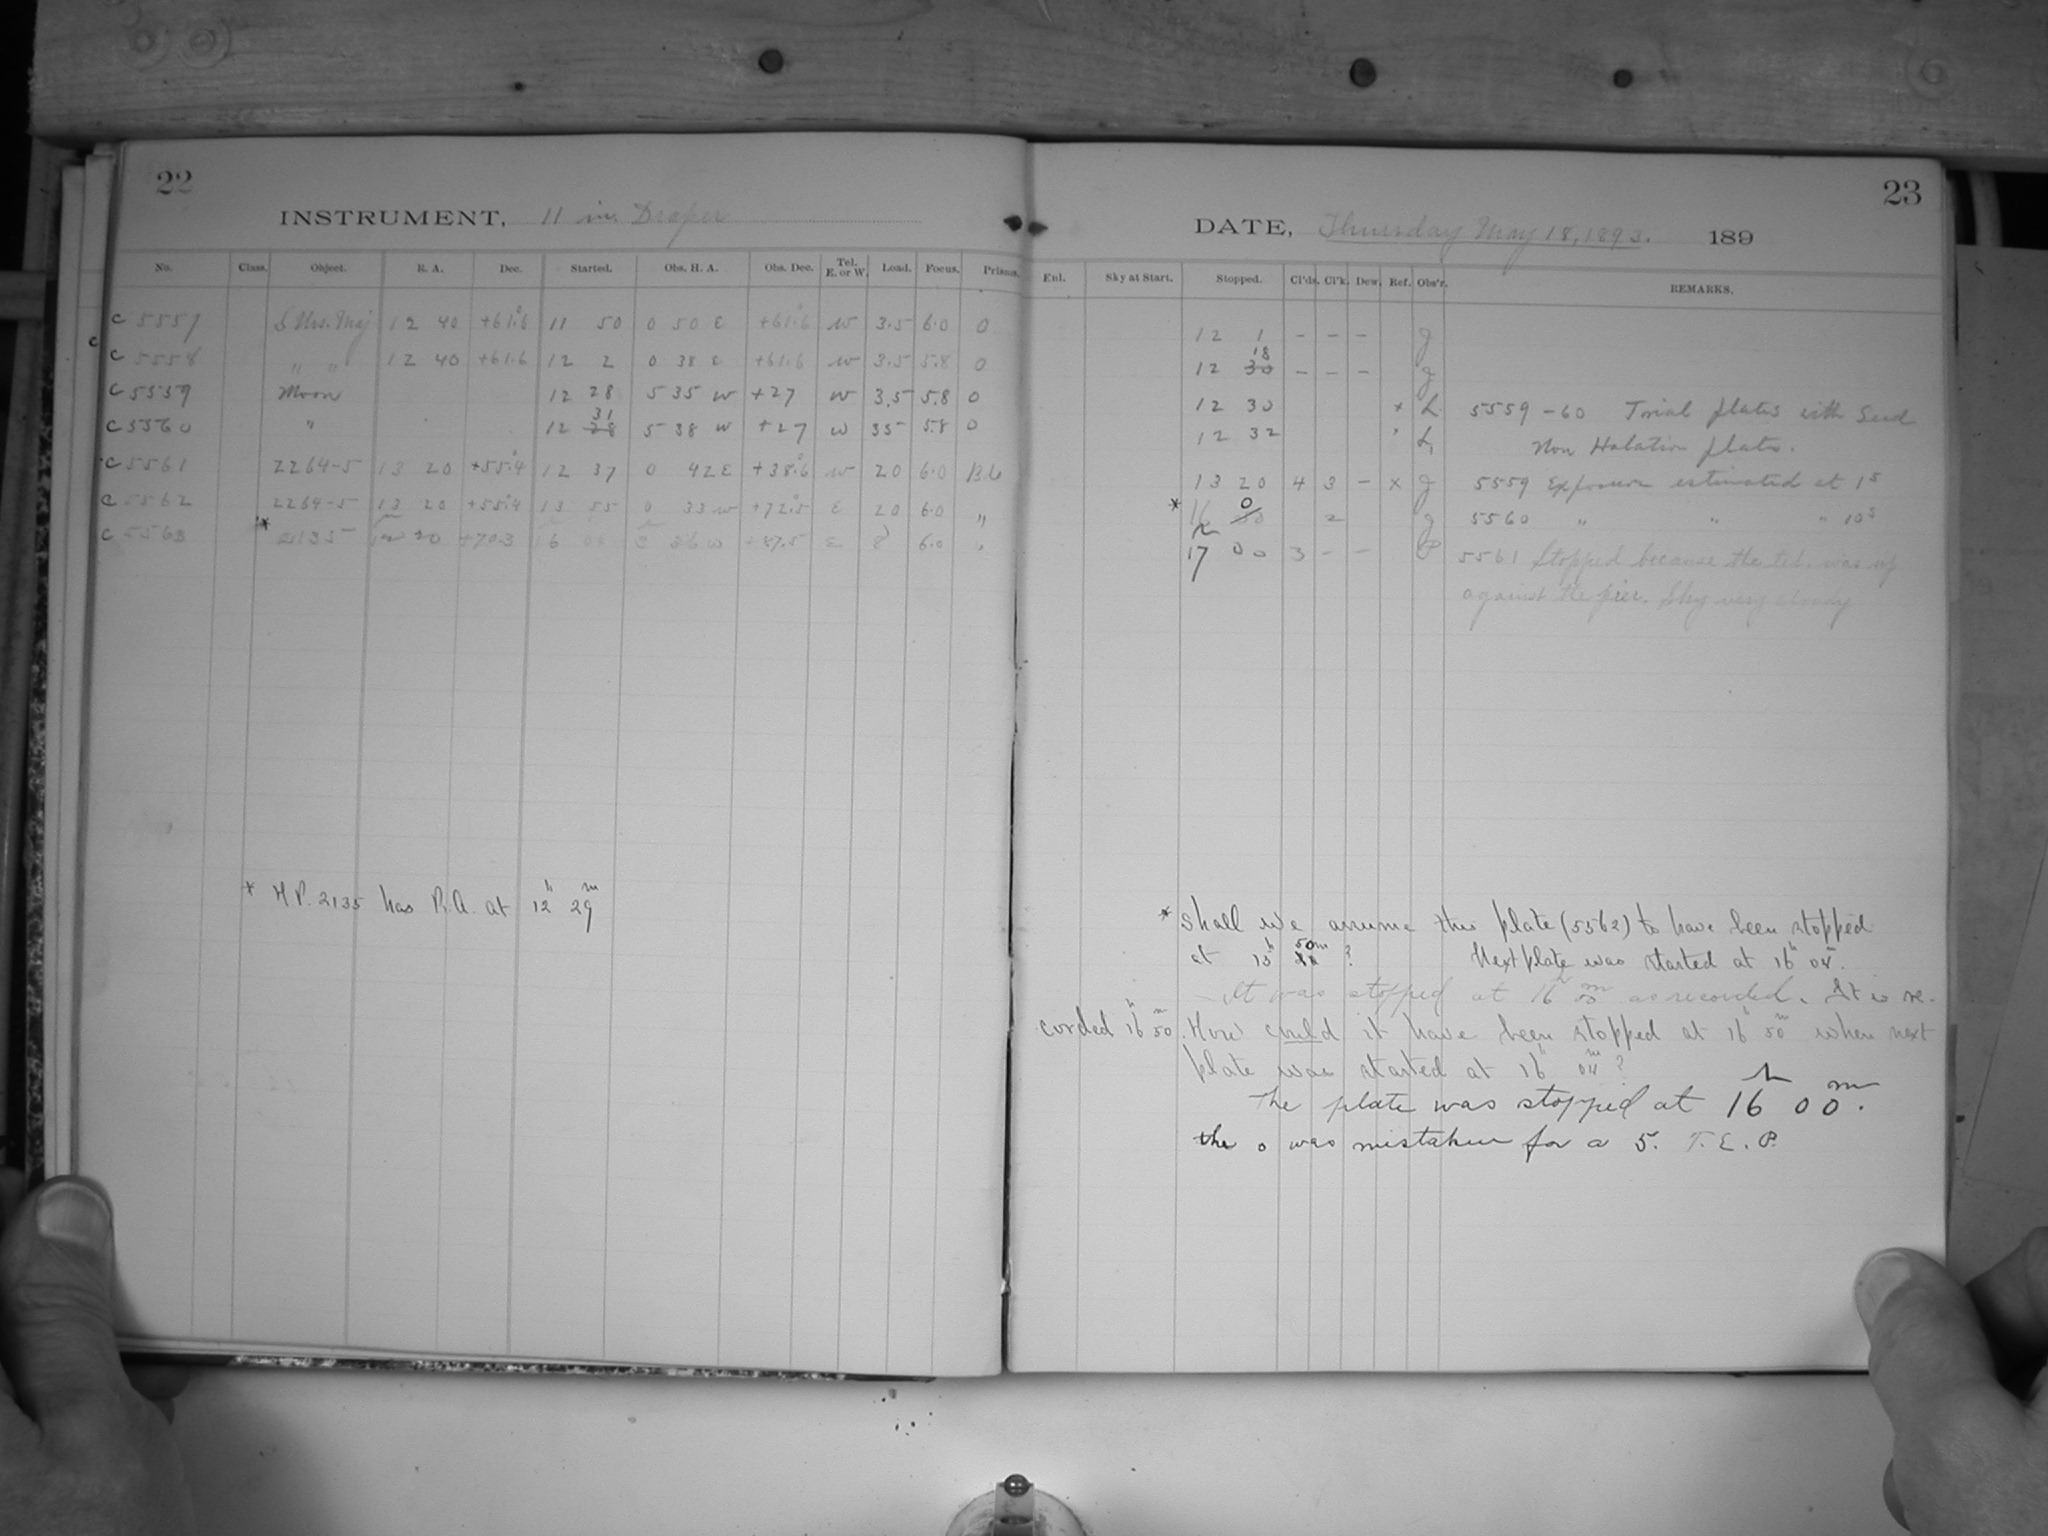 22
INSTRUMENT, 11 in. Draper
No. Class. Object. R. A. Dec. Started. Obs. H. A. Obs. Dec. Tel. E. or W. Load. Focus. Prisms.
C 5557 12 40 +61.6 11 50 0 50 E +61.6 W 3.5 6.0 0
C 5558 " " 12 40 +61.6 12 2 0 38 E +61.6 W 3.5 5.8 0
C 5559 Moon 12 28 5 35 W +27 W 3.5 5.8 0
C 5560 " 12 28 31 5 38 W +27 W 35 5.8 0
C 5561 2264-5 13 20 +55.4 12 37 0 42 E +38.6 W 20 6.0
C 5562 2264-5 13 20 +55.4 13 55 0 33 W +72.5 E 20 6.0 "
C 5563 * 2135 +70.3 16 W +87.5 E 8 6.0 "
* H.P. 2135 has R.A. at 12h 29m
23
DATE, Thursday May 18, 1893. 189
Enl. Sky at Start. Stopped. Cl'ds. Cl'k. Dew. Ref. Obs'r. REMARKS.
12 1 - - - J
12 30 18 - - - J
12 30 L 5559-60 Trial plates with Seed
12 32 L Non Halation plates.
13 20 4 3 - x J 5559 Exposure estimated at 1s
* 16 0 2 J 5560 " " " 10s
17 00 3 - - P 5561 Stopped because the tel. was up
against the pier. Sky very cloudy
* Shall we assume this plate (5562) to have been stopped
at 15h 50m ? Next plate was started at 16h 04m.
- It was stopped at 16h 00m as recorded. It is re-
corded 16h 50m. How could it have been stopped at 16h 50m when next
plate was started at 16h 04m ?
The plate was stopped at 16h 00m.
the 0 was mistaken for a 5. T. E. P.